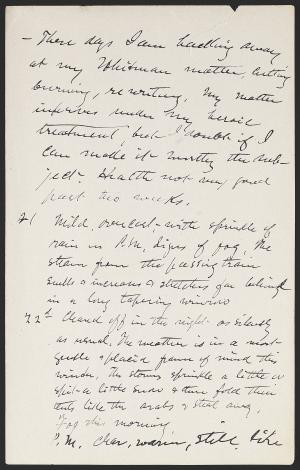 - These days I am hacking away
at my Whitman matter, cutting
burning, re writing. My matter
improves under my heroic
treatment, but I doubt if I
can make it worthy the sub-
ject. Health not very good
past two weeks.
21 Mild, overcast - with sprinkle of
rain in P.M. Signs of fog. The
steam from the passing train
swells & increases & stretches far behind
in a long tapering
22d Cleared off in the night as silently
as usual. The weather is in a most
gentle & placid frame of mind this
winter. The storms sprinkle a little or
spit a little snow & then fold their
tents like the arabs & steal away.
Fog this morning.
P.M. Clear, warm, still, like